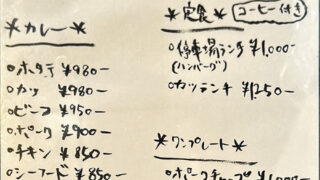 *カレー*
○ホタテ ¥980-
○カツ ¥980-
○ビーフ ¥950-
○ポーク ¥900-
○チキン ¥850-
○シーフード ¥850-
*定食* コーヒー付き
○停車場ランチ ¥1,000-
(ハンバーグ)
○カツランチ ¥1,250-
*ワンプレート*
○ポークチャップ ¥1,000-